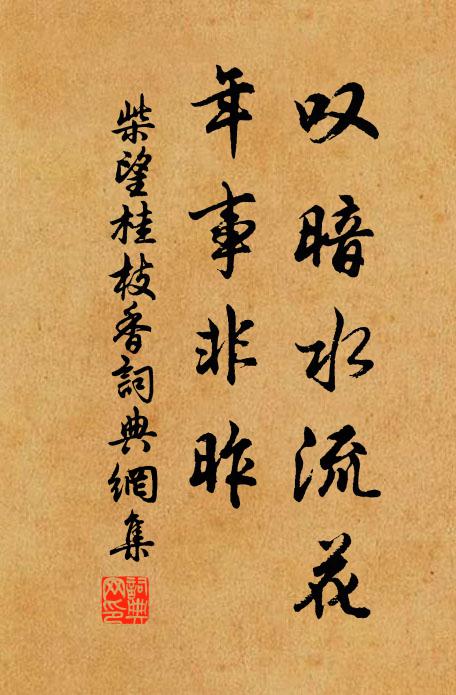 叹暗水流花
年事非昨
柴望桂枝香詞典網集
詞典网印